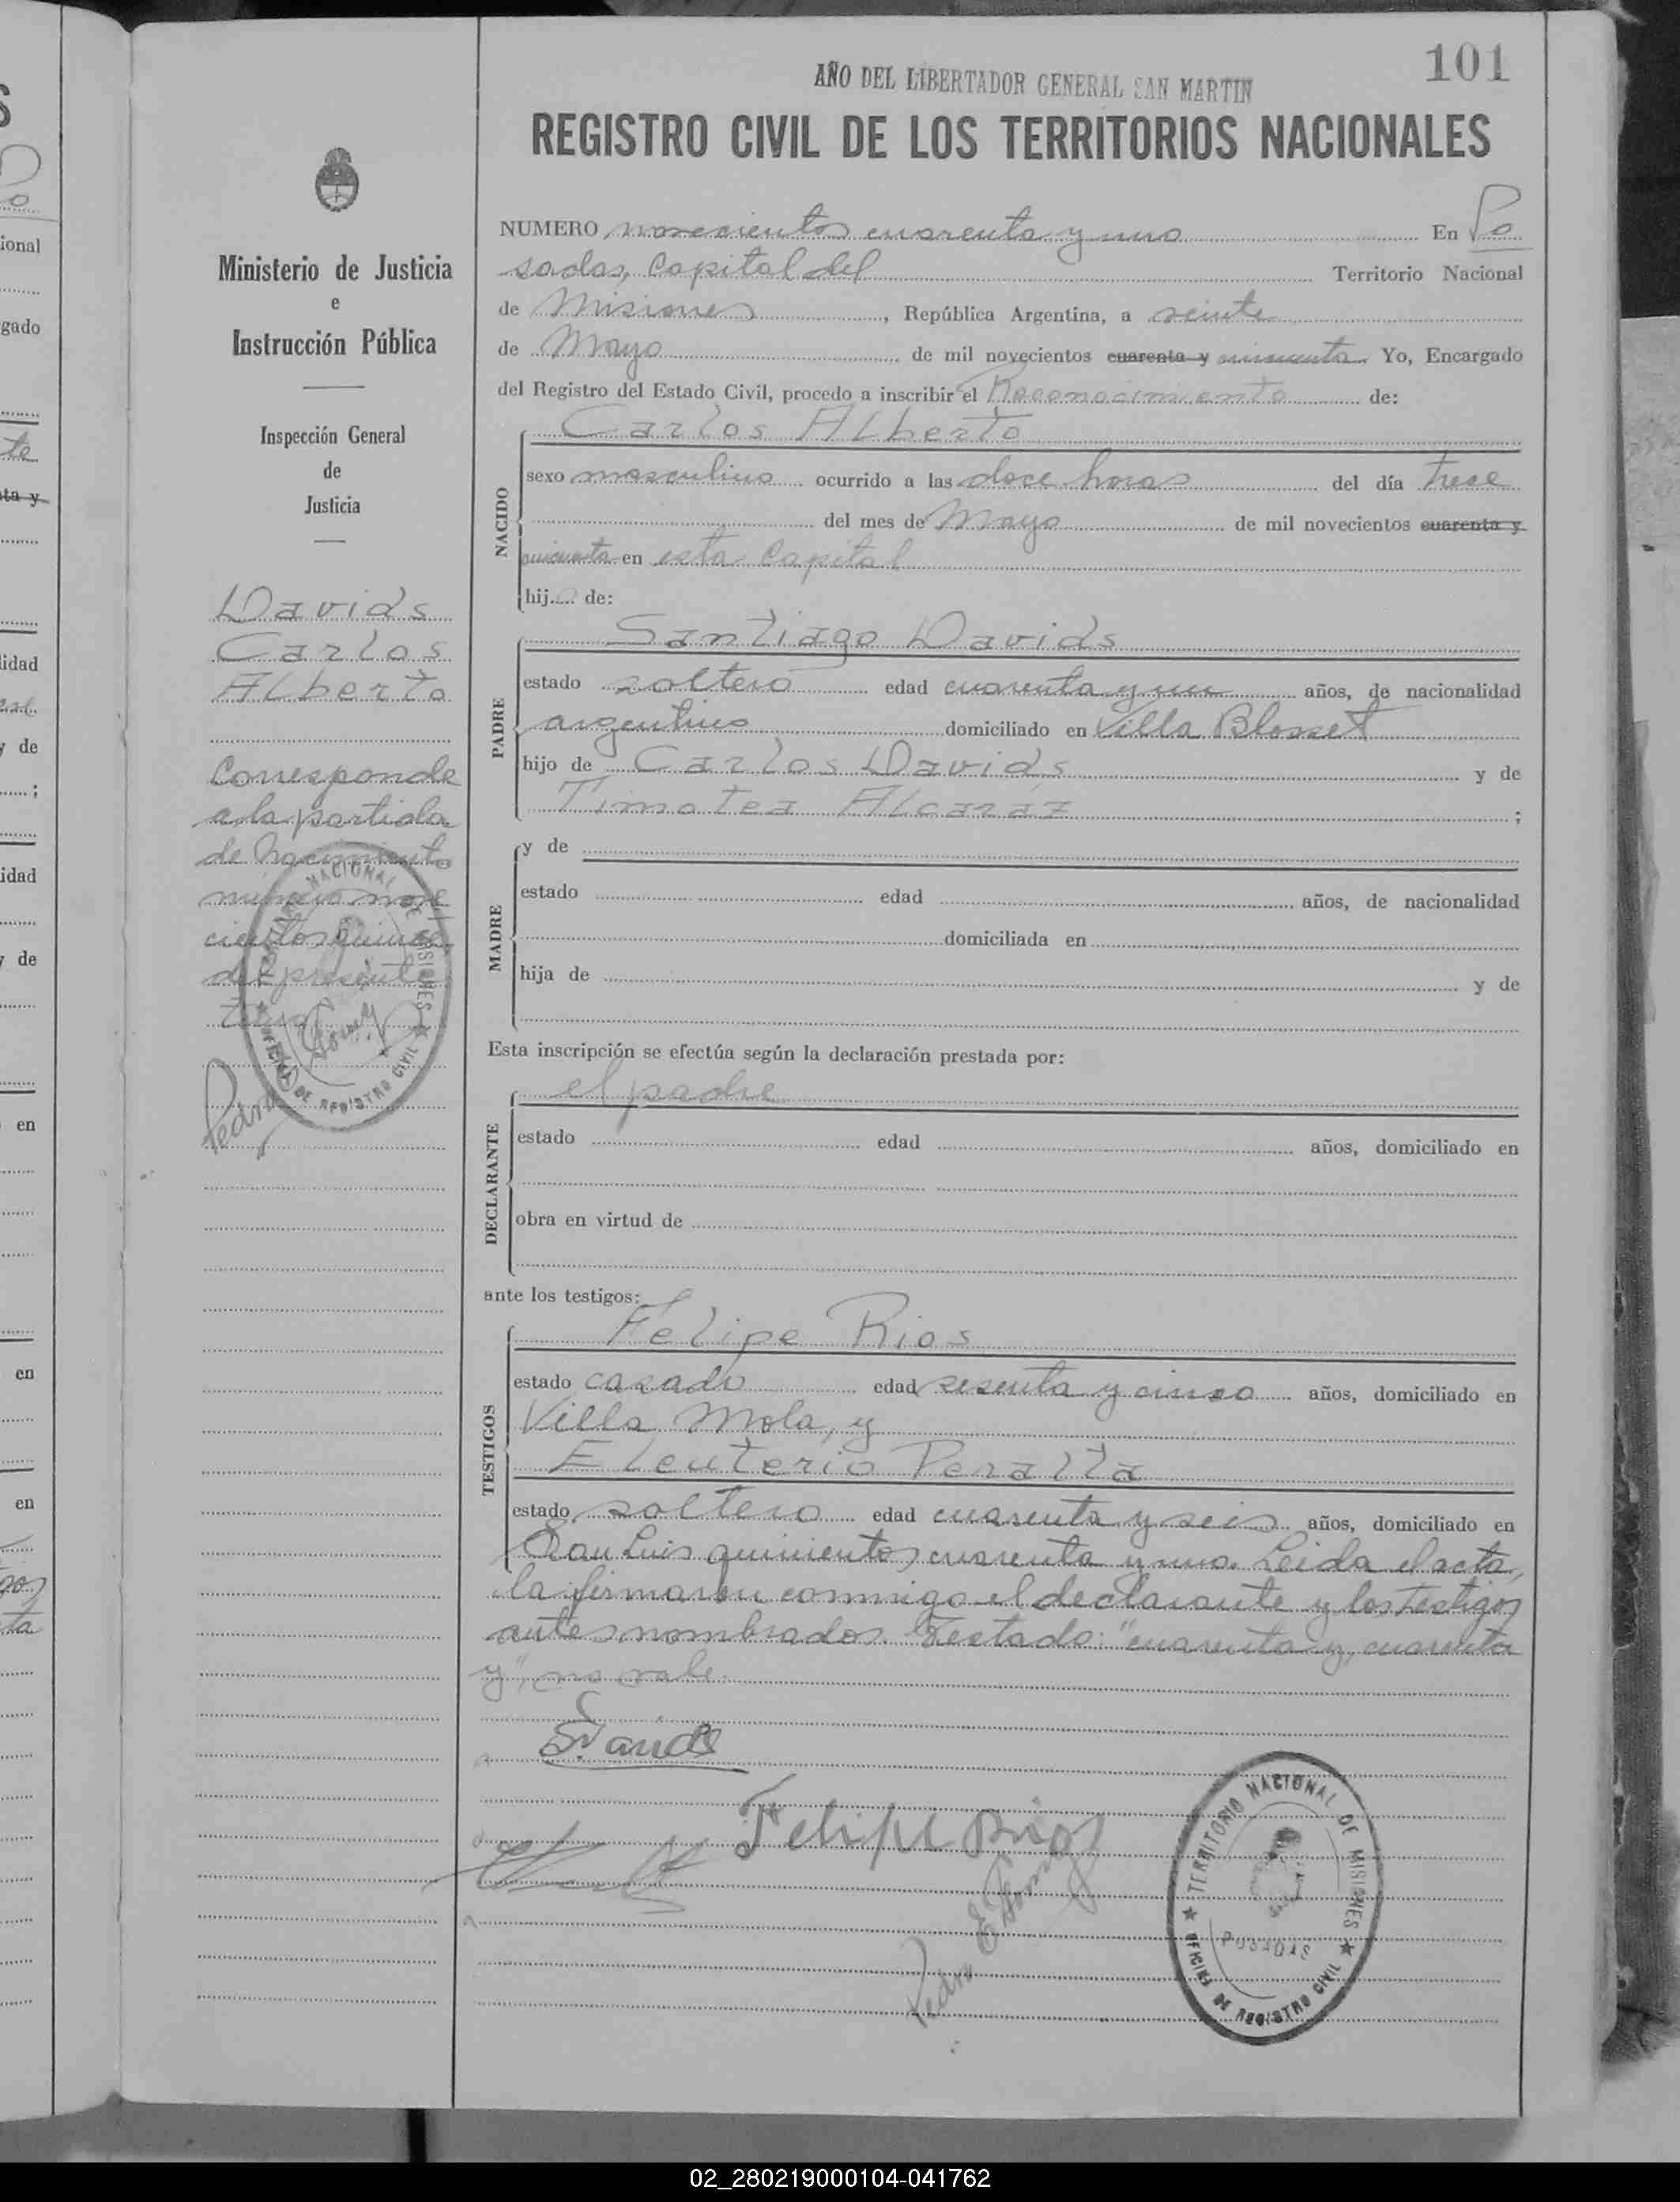 101
AÑO DEL LIBERTADOR GENERAL SAN MARTIN
REGISTRO CIVIL DE LOS TERRITORIOS NACIONALES
Ministerio de Justicia
e
Instrucción Pública
Inspección General
de
Justicia
Davids
Carlos
Alberto
Corresponde
a la partida
de Nacimiento
número nove
cientos quince
del presente
tomo
Pedro E Gomez
NUMERO novecientos cuarenta y uno En Po
sadas, Capital del Territorio Nacional
de Misiones, República Argentina, a veinte
de Mayo de mil novecientos cuarenta y cincuenta Yo, Encargado
del Registro del Estado Civil, procedo a inscribir el Reconocimiento de:
NACIDO
Carlos Alberto
sexo masculino ocurrido a las doce horas del día trece
del mes de Mayo de mil novecientos cuarenta y
cincuenta en esta Capital
hijo de:
PADRE
Santiago Davids
estado soltero edad cuarenta y un años, de nacionalidad
argentino domiciliado en Villa Blosset
hijo de Carlos Davids y de
Timotea Alcaraz ;
MADRE
y de
estado edad años, de nacionalidad
domiciliada en
hija de y de
Esta inscripción se efectúa según la declaración prestada por:
DECLARANTE
el padre
estado edad años, domiciliado en
obra en virtud de
ante los testigos:
TESTIGOS
Felipe Rios
estado casado edad sesenta y cinco años, domiciliado en
Villa Mola, y
Eleuterio Peralta
estado soltero edad cuarenta y seis años, domiciliado en
San Luis quinientos cuarenta y uno. Leida el acta,
la firmaron conmigo el declarante y los testigos
antes nombrados. Testado: "cuarenta y, cuarenta
y", no vale.
S. Davids
Felipe Rios
Pedro E Gomez
TERRITORIO NACIONAL DE MISIONES
POSADAS
OFICINA DE REGISTRO CIVIL
02_280219000104-041762